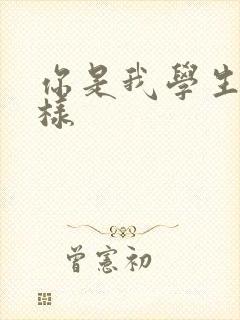 你是我學生
樣
曾憲初